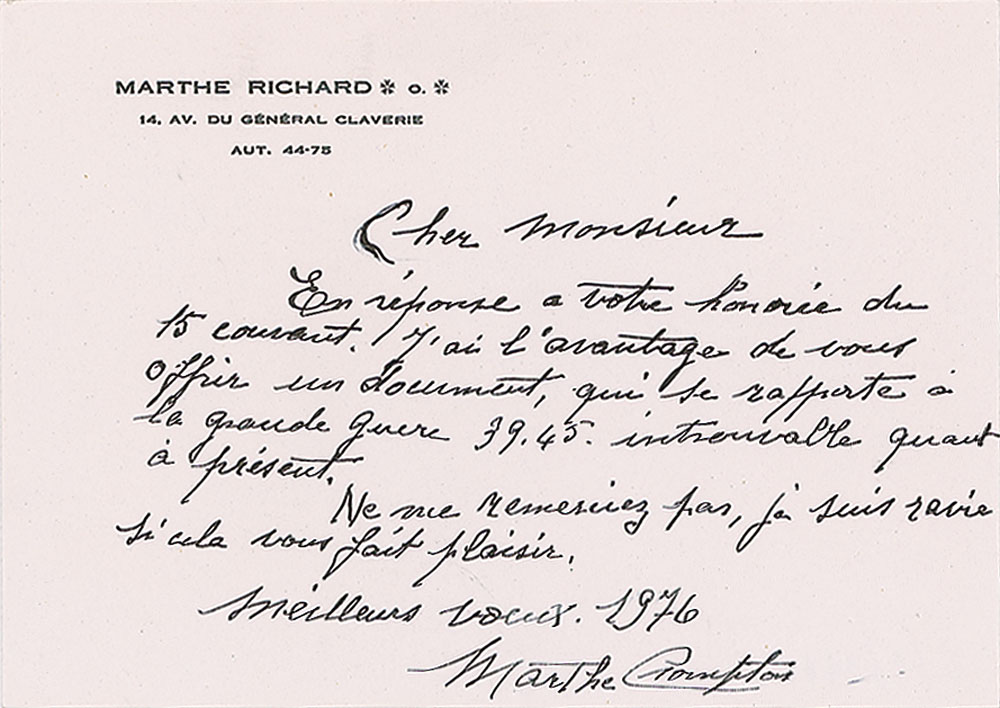 MARTHE RICHARD ✲ O. ✲
14, AV. DU GÉNÉRAL CLAVERIE
AUT. 44-75
Cher Monsieur
En réponse a votre honorée du
15 courant. J'ai l'avantage de vous
offrir un document, qui se rapporte à
la grande guerre 39.45. introuvable quant
à présent.
Ne me remerciez pas, je suis ravie
si cela vous fait plaisir.
Meilleurs vœux. 1976
Marthe Crompton